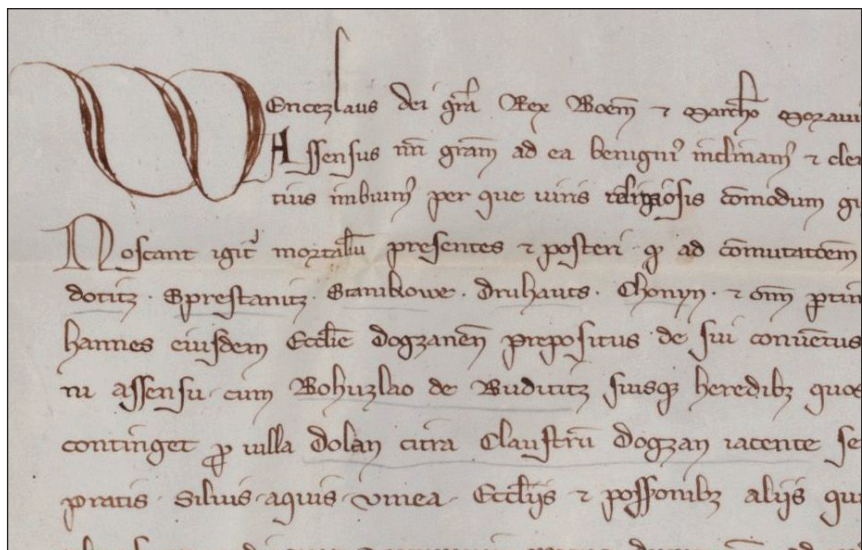 Wenceslaus dei gra Rex Boem ⁊ Marchio Moravi
Assensus nri gram ad ea benigni inclinam ⁊ cle
tius imbuim per que viris religiosis comodum gi
Noscant igit mortalibu presentes ⁊ posteri q ad comutatoem
dotitz . Sprestanitz . Stankowe . Druhauts . Chonyn . ⁊ om ptin
hannes eiusdem Ecclie Dogzanen prepositus de sui conuetus
ni assensu cum Bohuzlao de Budititz suisq heredibz quos
continget p villa Dolan citra Claustru Dogzan iacente se
pratis . siluis . aquis . vinea . Eccliis ⁊ possonibz aliis qui